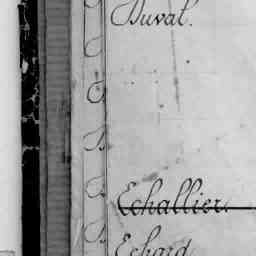 Duval.
Echallier.
Echard